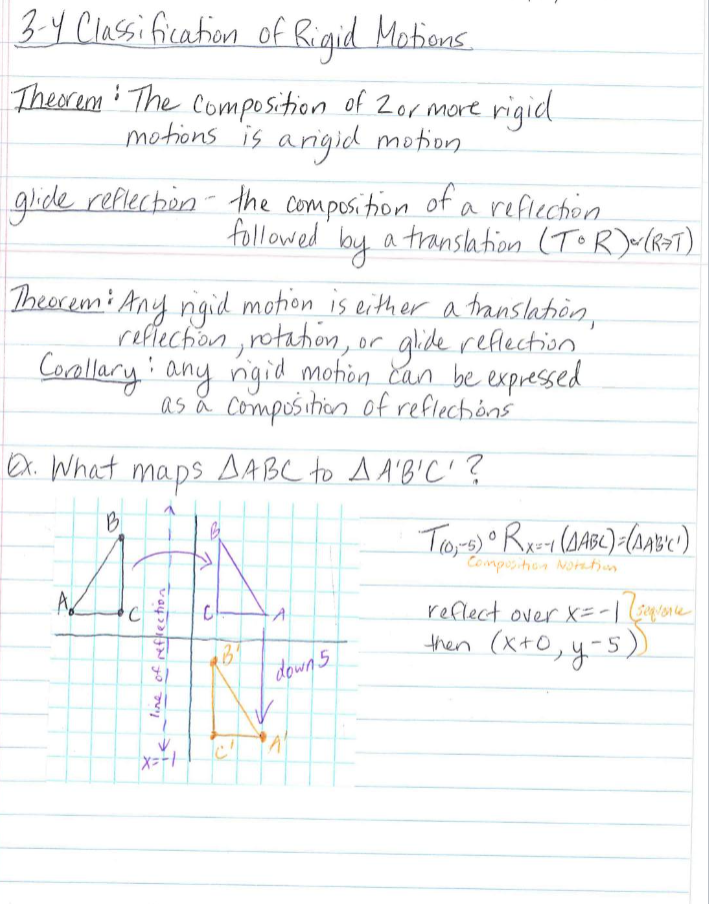 3-4 Classification of Rigid Motions
Theorem: The composition of 2 or more rigid
motions is a rigid motion
glide reflection - the composition of a reflection
followed by a translation (T∘R) or (R→T)
Theorem: Any rigid motion is either a translation,
reflection, rotation, or glide reflection
Corollary: any rigid motion can be expressed
as a composition of reflections
Ex. What maps △ABC to △A'B'C'?
B
B
A
C
C
A
line of reflection
x=-1
B'
down 5
C'
A'
T(0,-5) ∘ Rx=-1 (△ABC)=(△A'B'C')
Composition Notation
reflect over x=-1
then (x+0, y-5)
sequence